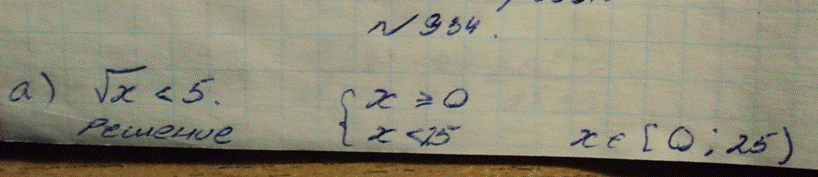 № 934.
а) √x < 5. { x ≥ 0
Решение x < 25 x ∈ [0; 25)